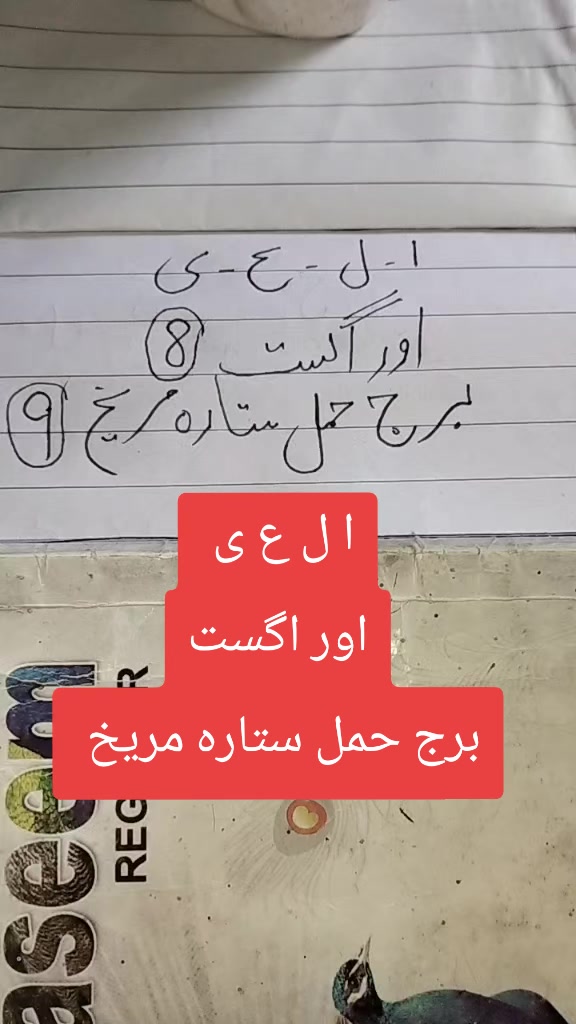 ا - ل - ع - ی
اور اگست 8
برج حمل ستارہ مریخ 9
ا ل ع ی
اور اگست
برج حمل ستارہ مریخ
aseem
REG R